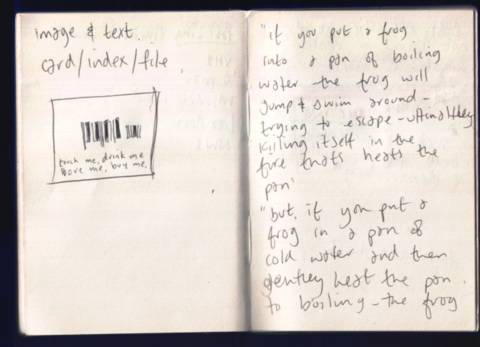 image & text.
card/index/file
touch me, drink me
love me, buy me.
"if you put a frog
into a pan of boiling
water the frog will
jump & swim around -
trying to escape - ultimatley
killing itself in the
fire thats heats the
pan'
"but, if you put a
frog in a pan of
cold water and then
gentley heat the pan.
to boiling - the frog